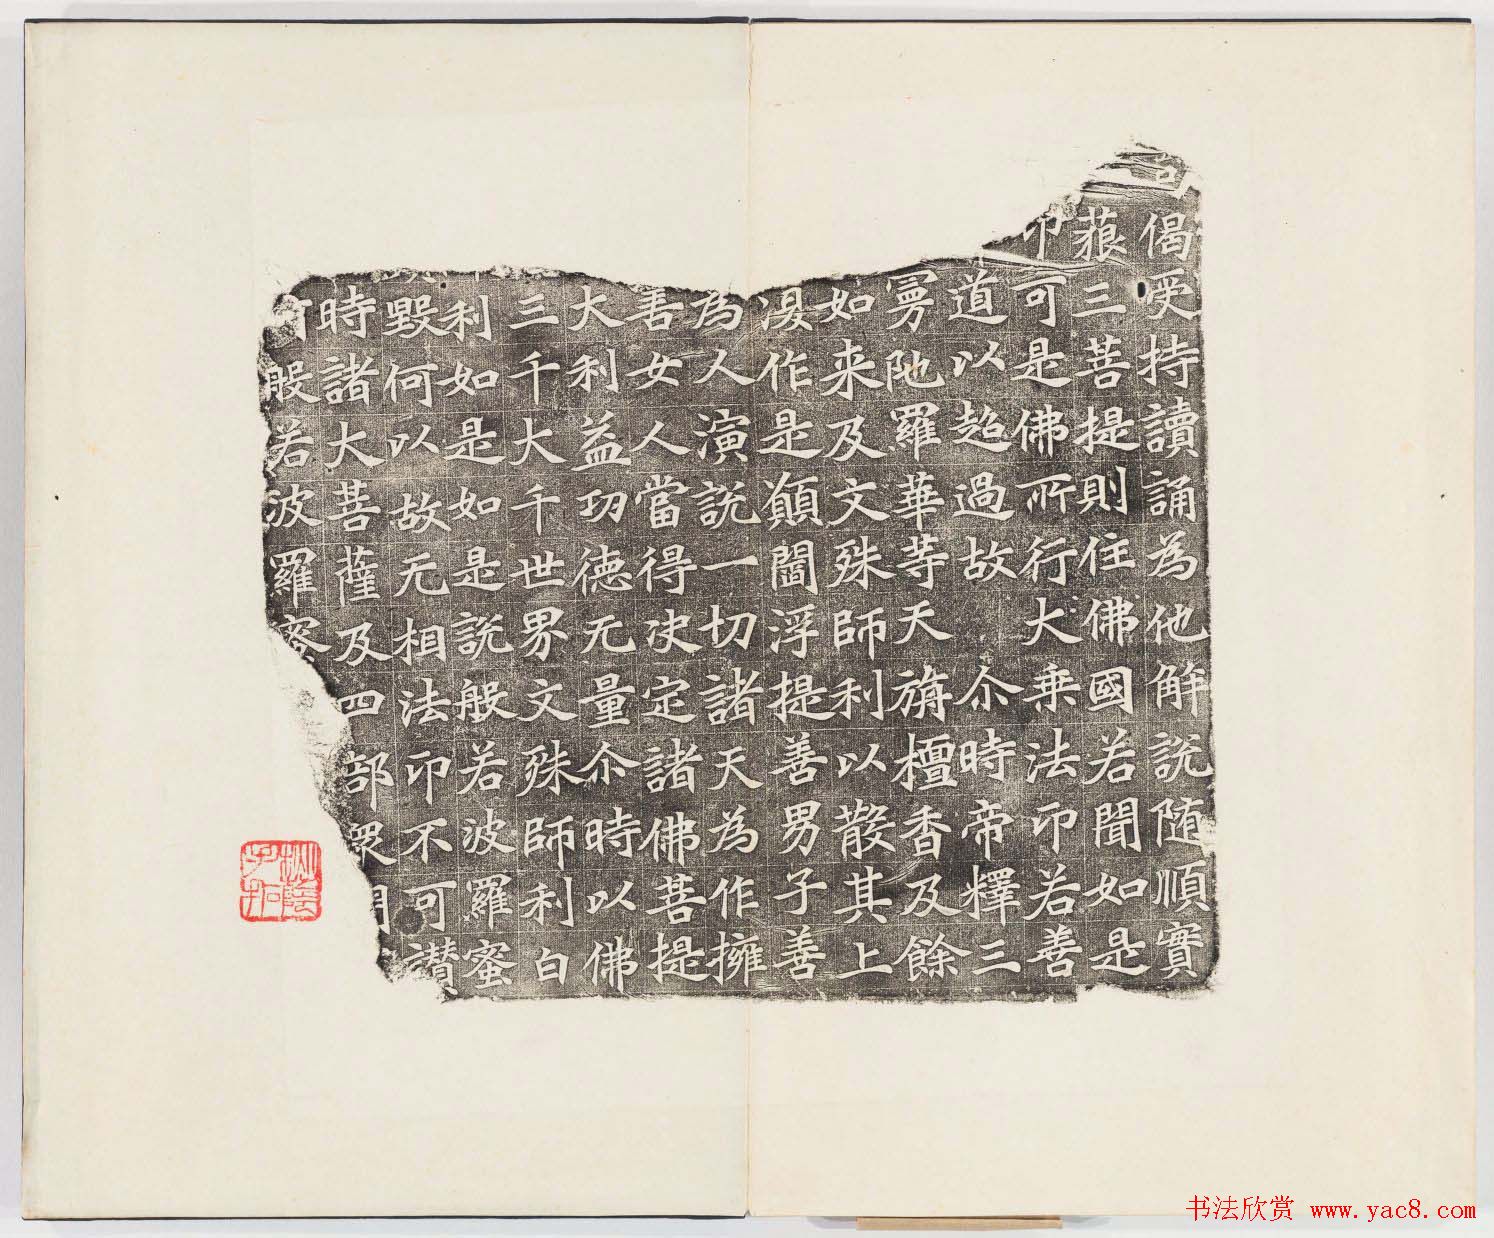 偈受持讀誦為他解說随順實
藐三菩提則住佛國若聞如是
印可是佛所行大乘法印若善
道以超過故 尒時帝釋三
曼陁羅華等天旃檀香及餘
如来及文殊師利以散其上
復作是願閻浮提善男子善
為人演說一切諸天為作擁
善女人當得决定諸佛菩提
大利益功德无量尒時以佛
三千大千世界文殊師利白
利如是如是說般若波羅蜜
毀何以故无相法印不可讃
時諸大菩薩及四部眾聞
般若波羅蜜
书法欣赏 www.yac8.com